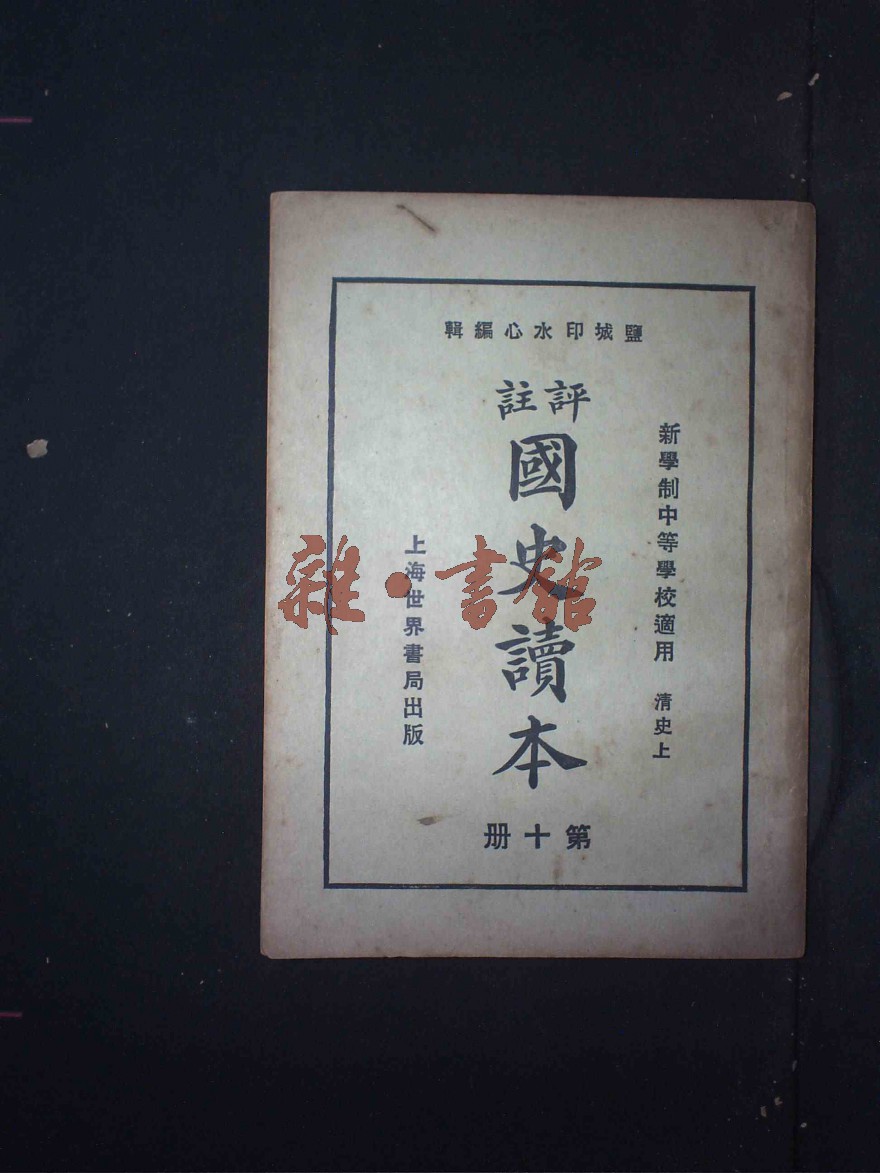 鹽城印水心編輯
新學制中等學校適用 清史上
評註
國史讀本
第十册
上海世界書局出版
雜·書館